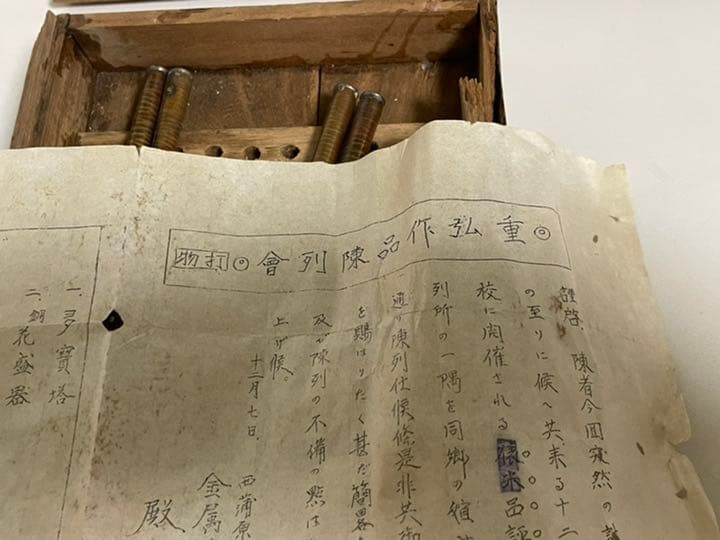 ◎重弘作品陳列會◎打物
謹啓、陳者今回突然の
の至りに候へ共、来る十二
校に開催される
列所の一隅を同郷の
通り陳列仕候條是非共御
を賜はりたく甚だ簡畧
及び陳列の不備の點は
上げ候。
十二月七日、
西蒲原
金属
殿
一、多寳塔
二、銅花盛器